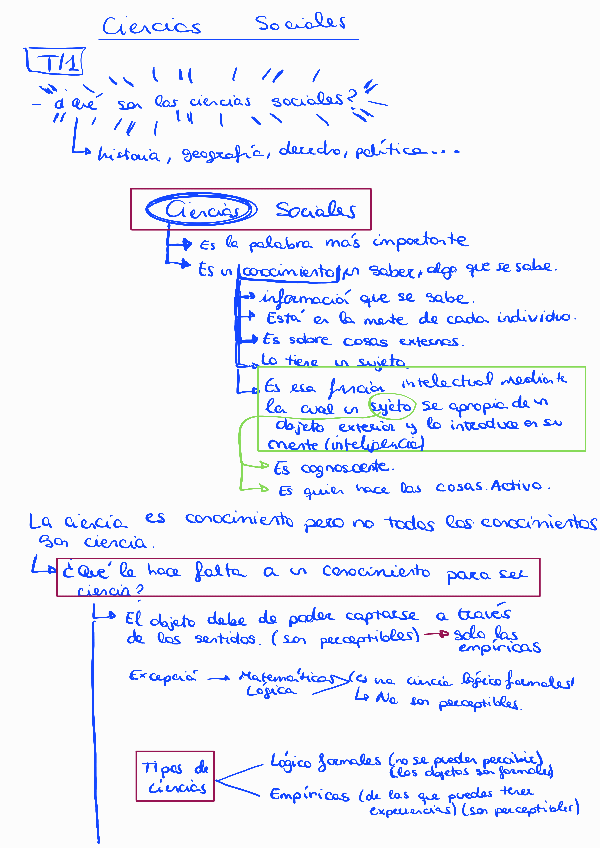 Ciencias Sociales
T/1
¿Qué son las ciencias sociales?
historia, geografía, derecho, política...
Ciencias Sociales
Es la palabra más importante
Es un conocimiento, un saber, algo que se sabe.
información que se sabe.
Está en la mente de cada individuo.
Es sobre cosas externas.
Lo tiene un sujeto
Es esa función intelectual mediante
la cual un sujeto se apropia de un
objeto exterior y lo introduce en su
mente (inteligencia)
Es cognoscente.
Es quien hace las cosas. Activo.
La ciencia es conocimiento pero no todos los conocimientos
son ciencia.
¿Qué le hace falta a un conocimiento para ser
ciencia?
El objeto debe de poder captarse a través
de los sentidos. (son perceptibles) → solo las
empíricas
Excepción → Matemáticas (es una ciencia lógico formales)
Lógica
No son perceptibles.
Tipos de
ciencias
Lógico formales (no se pueden percibir)
(los objetos son formales)
Empíricas (de las que puedes tener
experiencias) (son perceptibles)